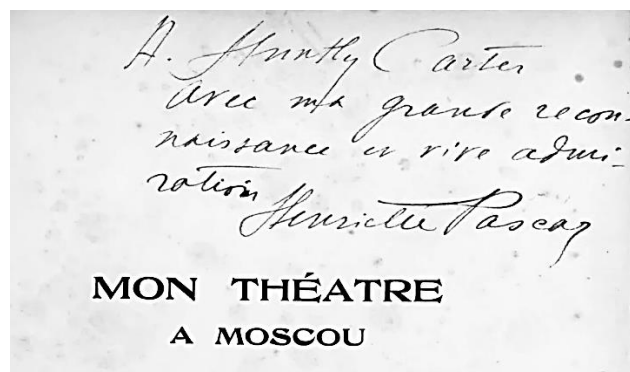 A. Huntly Carter
avec ma grande recon-
naissance et vive admi-
ration
Henriette Pascar
MON THÉATRE
A MOSCOU